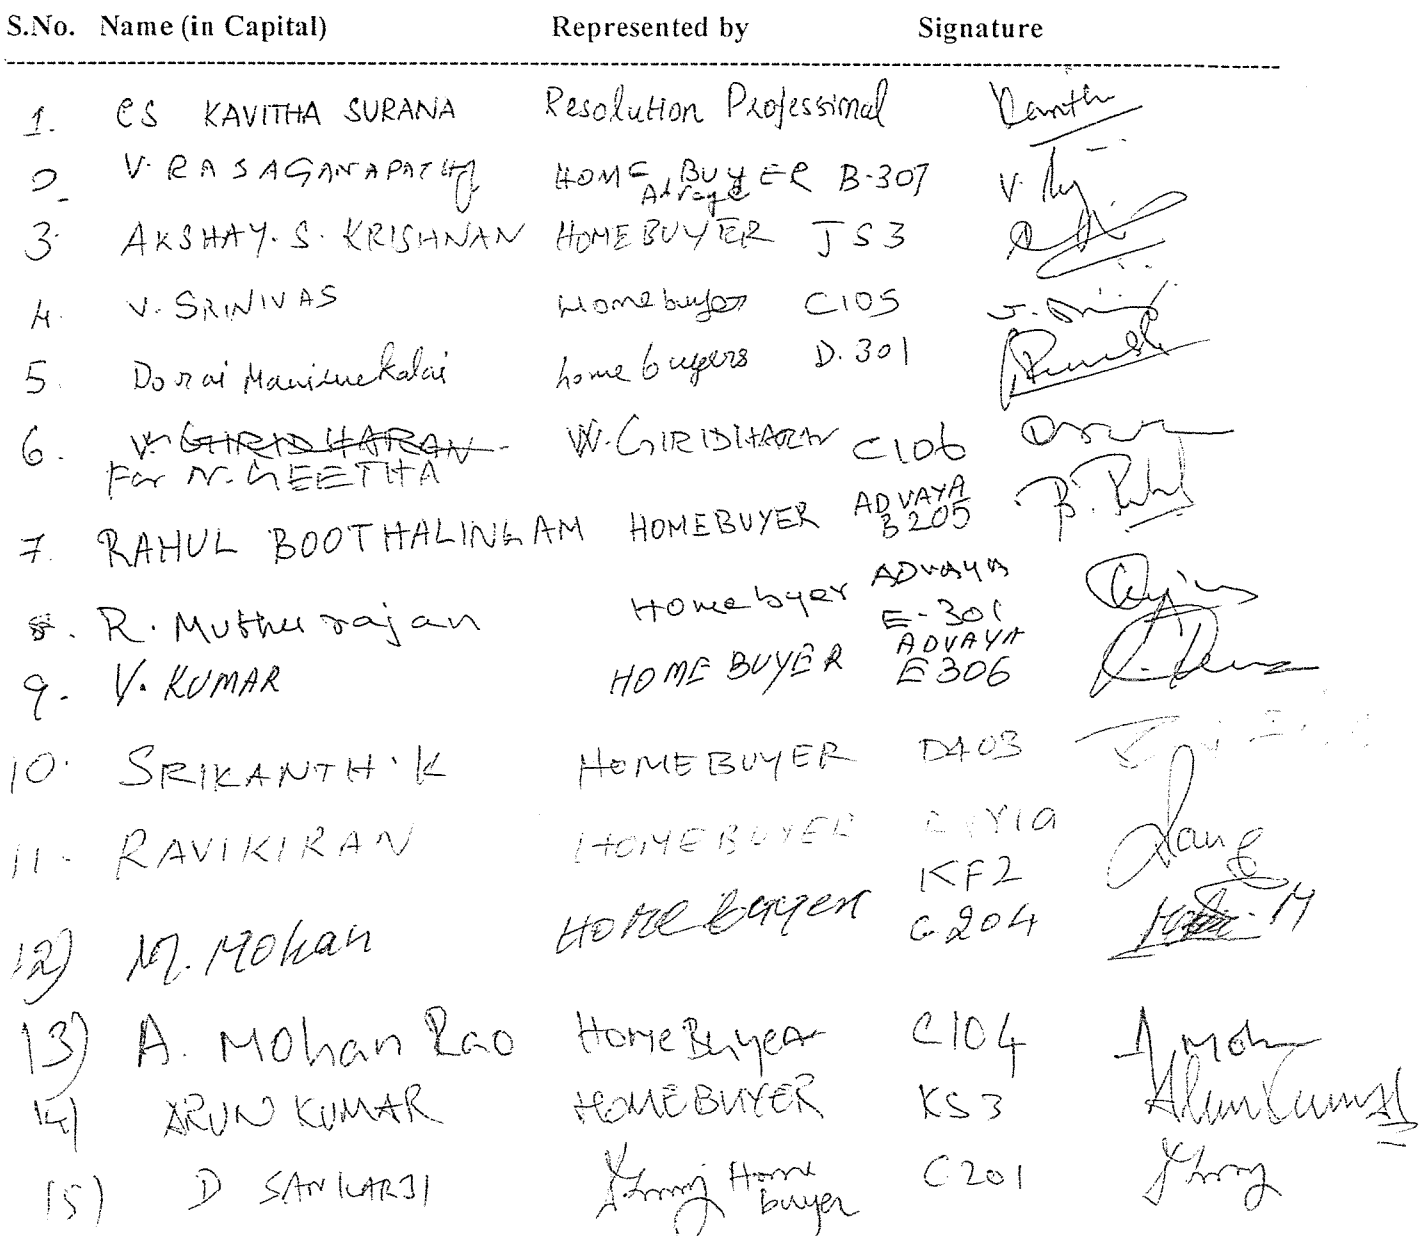 S.No. Name (in Capital) Represented by Signature
1. CS KAVITHA SURANA Resolution Professional Kavitha
2. V. RASAGANAPATHY HOME BUYER B-307
Advaya
3. AKSHAY. S. KRISHNAN HOMEBUYER JS3
4. V. SRINIVAS Homebuyer C105
5. Dorai Manimekalai home buyers D.301
6. V. GIRIDHARAN V. GIRIDHARAN C106
For N. GEETHA
7. RAHUL BOOTHALINGAM HOMEBUYER ADVAYA
B205
8. R. Muthu rajan Home byer ADVAYA
E-301
9. V. KUMAR HOME BUYER ADVAYA
E306
10. SRIKANTH. K HOMEBUYER D403
11. RAVIKIRAN HOMEBUYER
KF2
12) M. Mohan Home buyer G204
13) A. Mohan Rao Home Buyer C104 A. Moh
14) ARUN KUMAR HOMEBUYER KS3 Arun Kumar
15) D SANKARJI Home C201
buyer